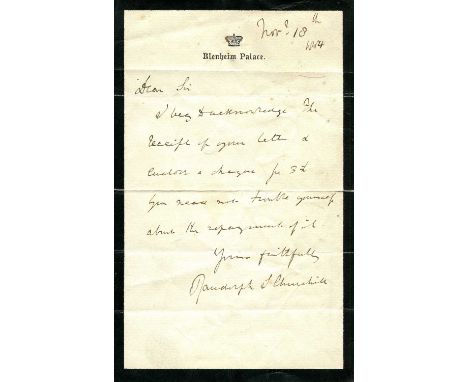 Novr. 18th
1884
Blenheim Palace.
Dear Sir
I beg to acknowledge the
receipt of your letter &
enclose a cheque for
You need not trouble yourself
about the repayment of it.
Yours faithfully
Randolph S Churchill